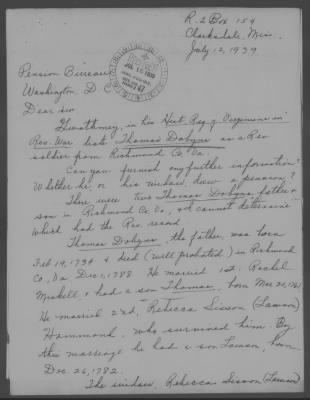 R. 2 Box 154
Clarksdale, Miss.,
July 12, 1939
Pension Bureau
Washington, D
Dear sir
Gwathmey, in his Hist. Reg. of Virginians in
Rev. War lists Thomas Dobyns as a Rev
soldier from Richmond Co., Va.
Can you furnish any further information?
Whether he, or his widow, drew a pension?
There were two Thomas Dobyns father &
son in Richmond Co. Va., & cannot determine
which had the Rev. record
Thomas Dobyns, the father, was born
Feb 19, 1734 & died (will probated) in Richmond
Co., Va Dec, 1788. He married 1st, Rachel
& had a son Thomas, born Mar 20, 1761
He married 2nd, Rebecca Sisson (Lawson)
Hammond, who survived him. By
this marriage he had a son Lawson, born
Dec. 26, 1782.
The widow, Rebecca Sisson (Lawson)